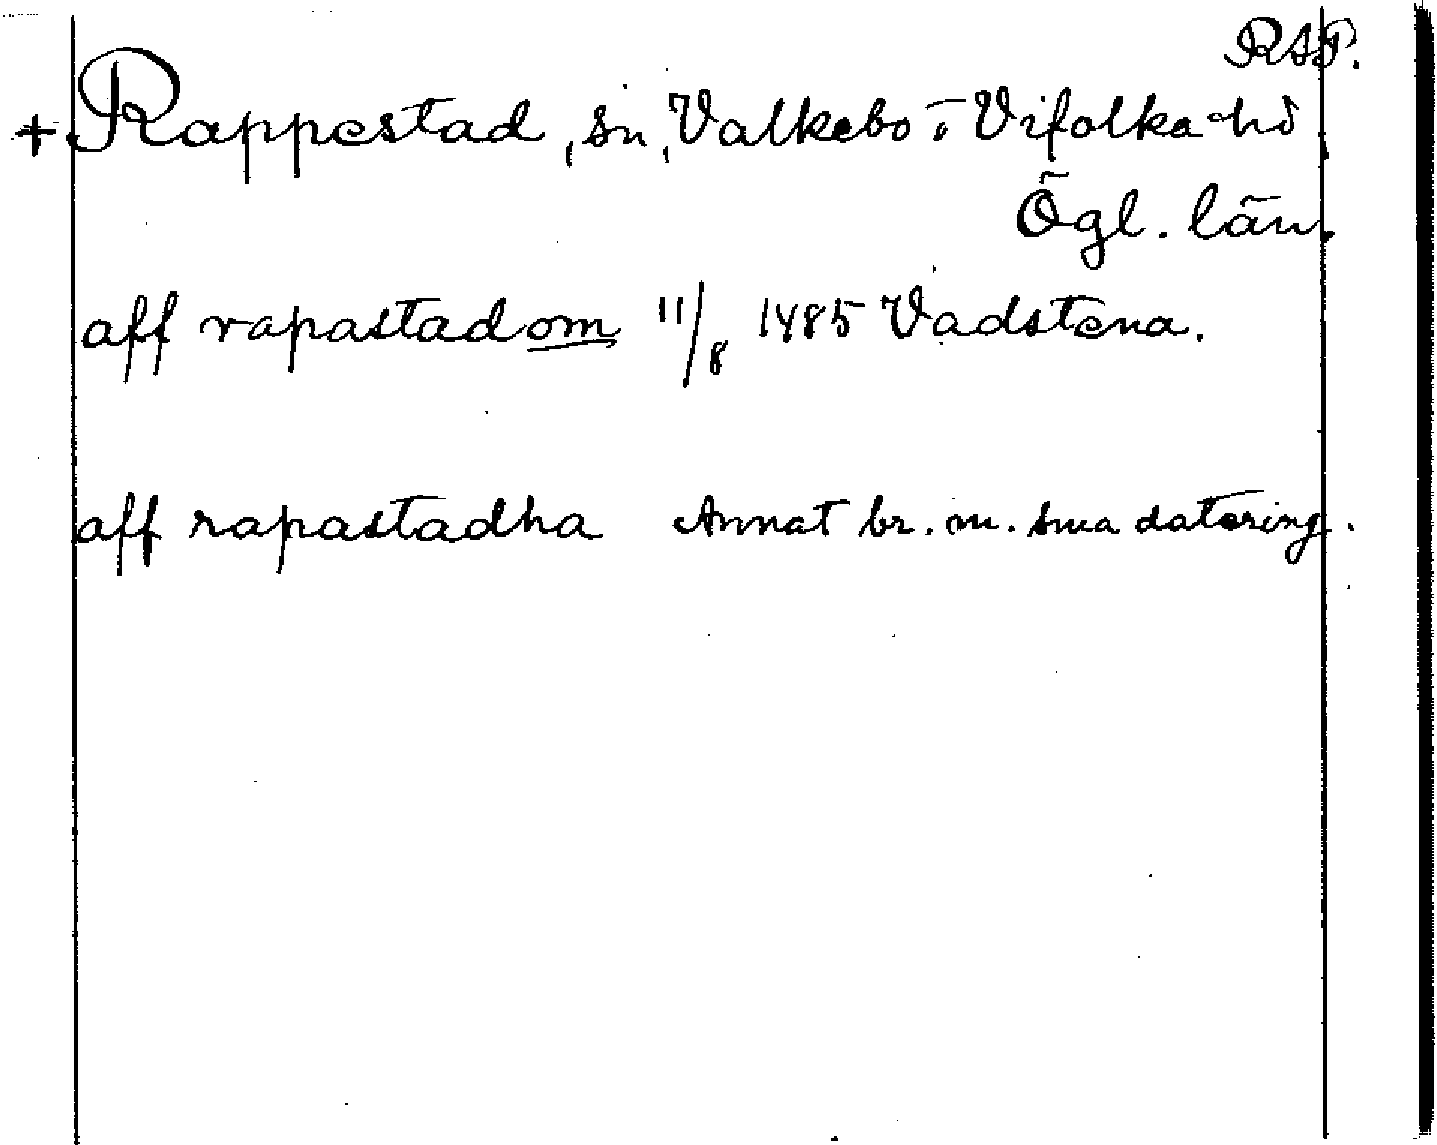 RAP.
+ Rappestad, sn, Valkebo o. Vifolka hd
Ögl. län.
aff rapastadom 11/8 1485 Vadstena.
aff rapastadha Annat br. m. sma datering.